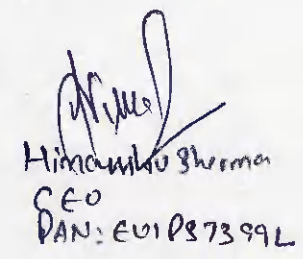 Himanshu Sharma
CEO
PAN: EVIPS7399L